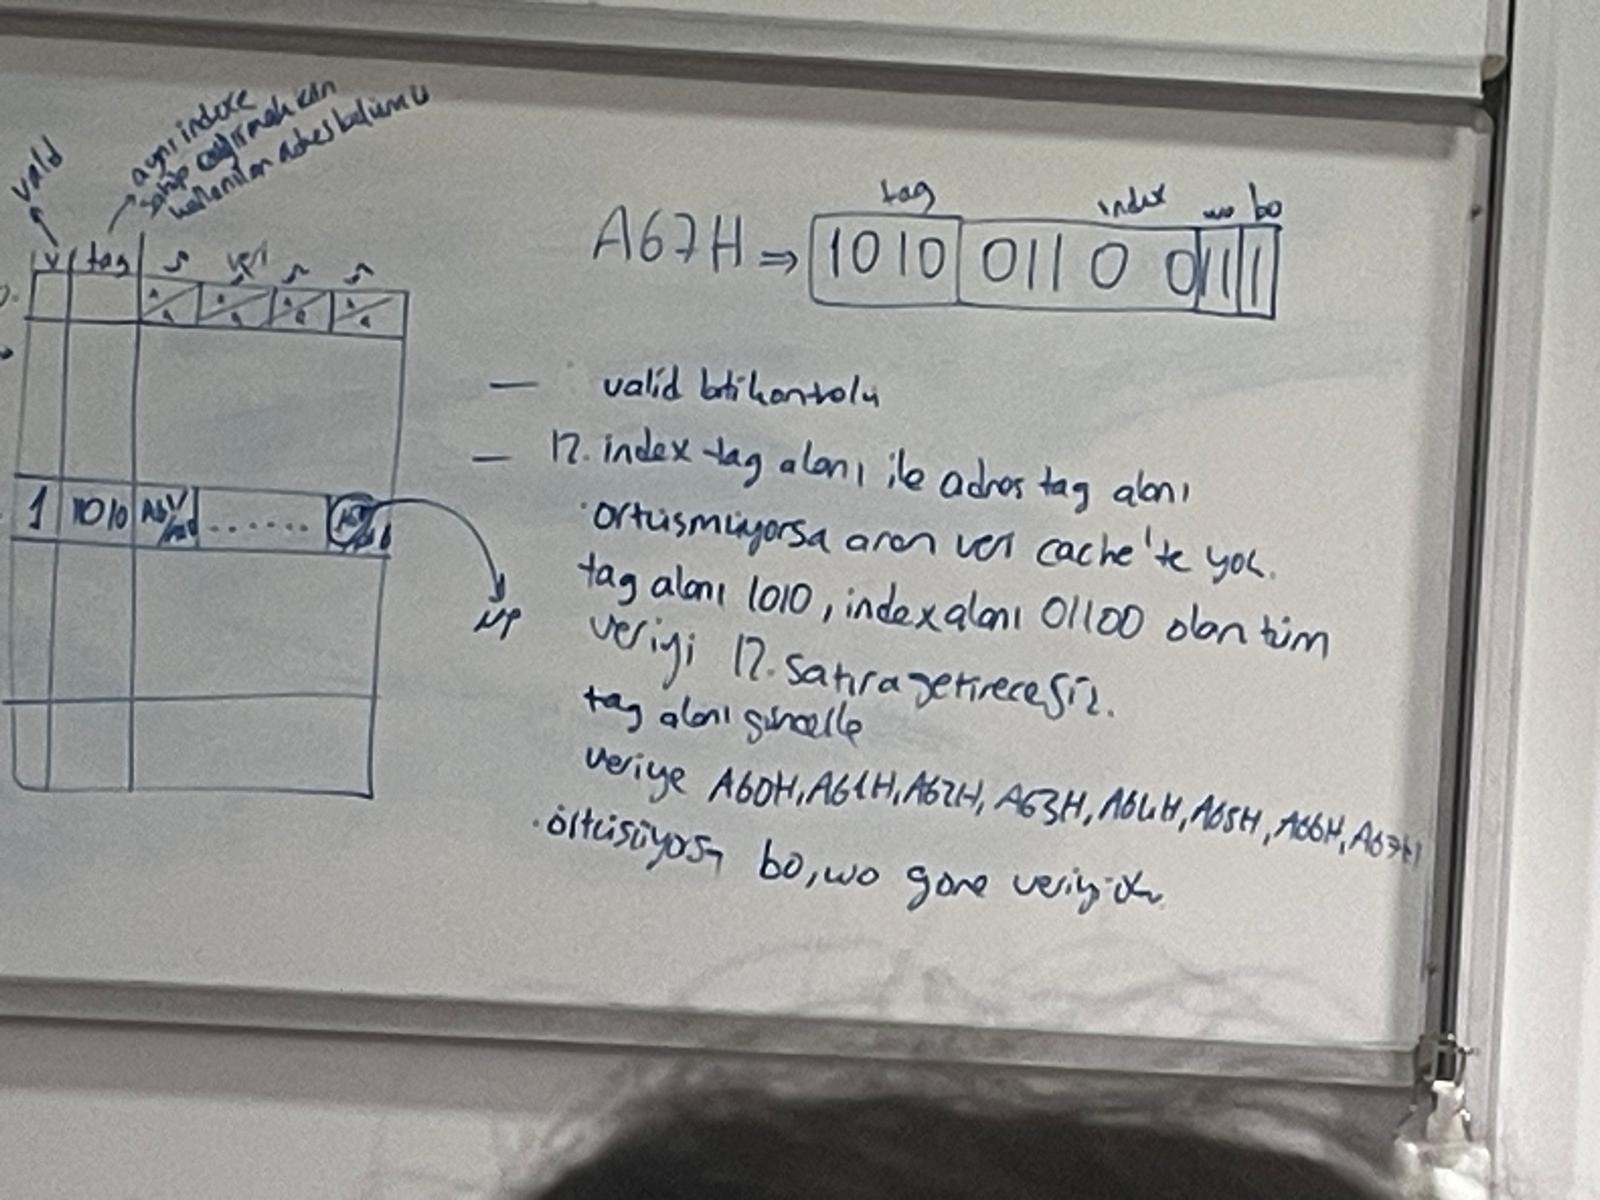 valid
aynı indexe
sahip
kullanılan adres bölümü
V tag veri
1 1010
MP
tag index wo bo
A67H ⇒ 1010 0110 0 11 1
— valid biti kontrolü
— 12. index tag alanı ile adres tag alanı
· örtüşmüyorsa aran veri cache'te yok.
tag alanı 1010, index alanı 01100 olan tüm
veriyi 12. satıra getireceğiz.
tag alanı güncelle
veriye A60H, A61H, A62H, A63H, A64H, A65H, A66H, A67H
· örtüşüyorsa bo, wo göre veriyi